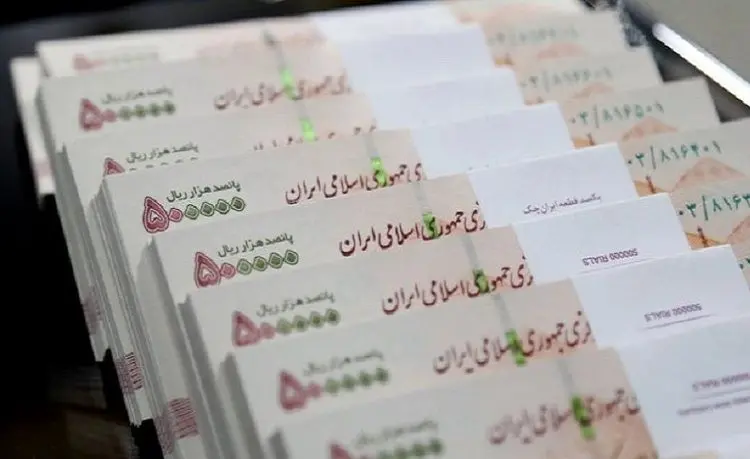 پانصد هزار ریال
۵۰۰۰۰۰
جمهوری اسلامی ایران
۰۳/۸۱۶۵۰۱
پانصد هزار ریال
۰۳/۸۱۶۴۰۱
پانصد هزار ریال
۵۰۰۰۰۰
جمهوری اسلامی ایران
یکصد قطعه ایران چک
پانصد هزار ریال
۵۰۰۰۰۰
جمهوری اسلامی ایران
500000 RIALS
پانصد هزار ریال
۵۰۰۰۰۰
جمهوری اسلامی ایران
500000 RIALS
پانصد هزار ریال
۵۰۰۰۰۰
جمهوری اسلامی ایران
500000 RIALS
پانصد هزار ریال
جمهوری اسلامی ایران